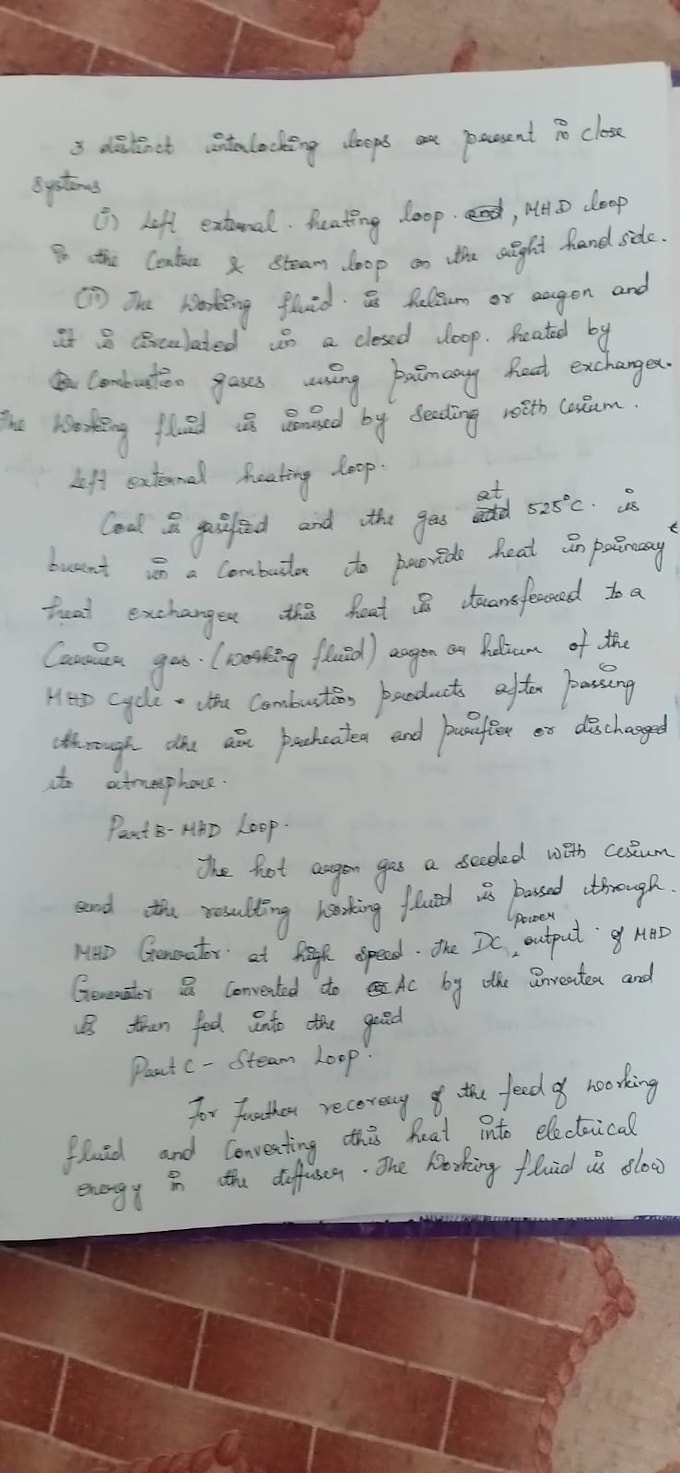 3 distinct interlocking loops are present in close
systems
(i) Left external. heating loop. and, MHD loop
is the Centre & Steam loop on the right hand side.
(ii) The Working fluid. is helium or argon and
it is circulated in a closed loop. heated by
Combustion gases using primary heat exchanger.
The Working fluid is ionised by Seeding with Cesium.
Left external heating loop.
Coal is gasified and the gas at 525°C. is
burnt in a Combustor to provide heat in primary
heat exchanger this heat is transferred to a
Carrier gas. (working fluid) argon or helium of the
MHD cycle. the Combustion products after passing
through the air preheater and purifier or discharged
to atmosphere.
Part B- MHD Loop.
The hot argon gas a seeded with cesium
and the resulting working fluid is passed through.
MHD Generator. at high speed. The DC power output of MHD
Generator is Converted to AC by the inverter and
is then fed into the grid
Part C - Steam Loop.
For Further recovery of the feed of working
fluid and Converting this heat into electrical
energy in the diffuser. The Working fluid is slow